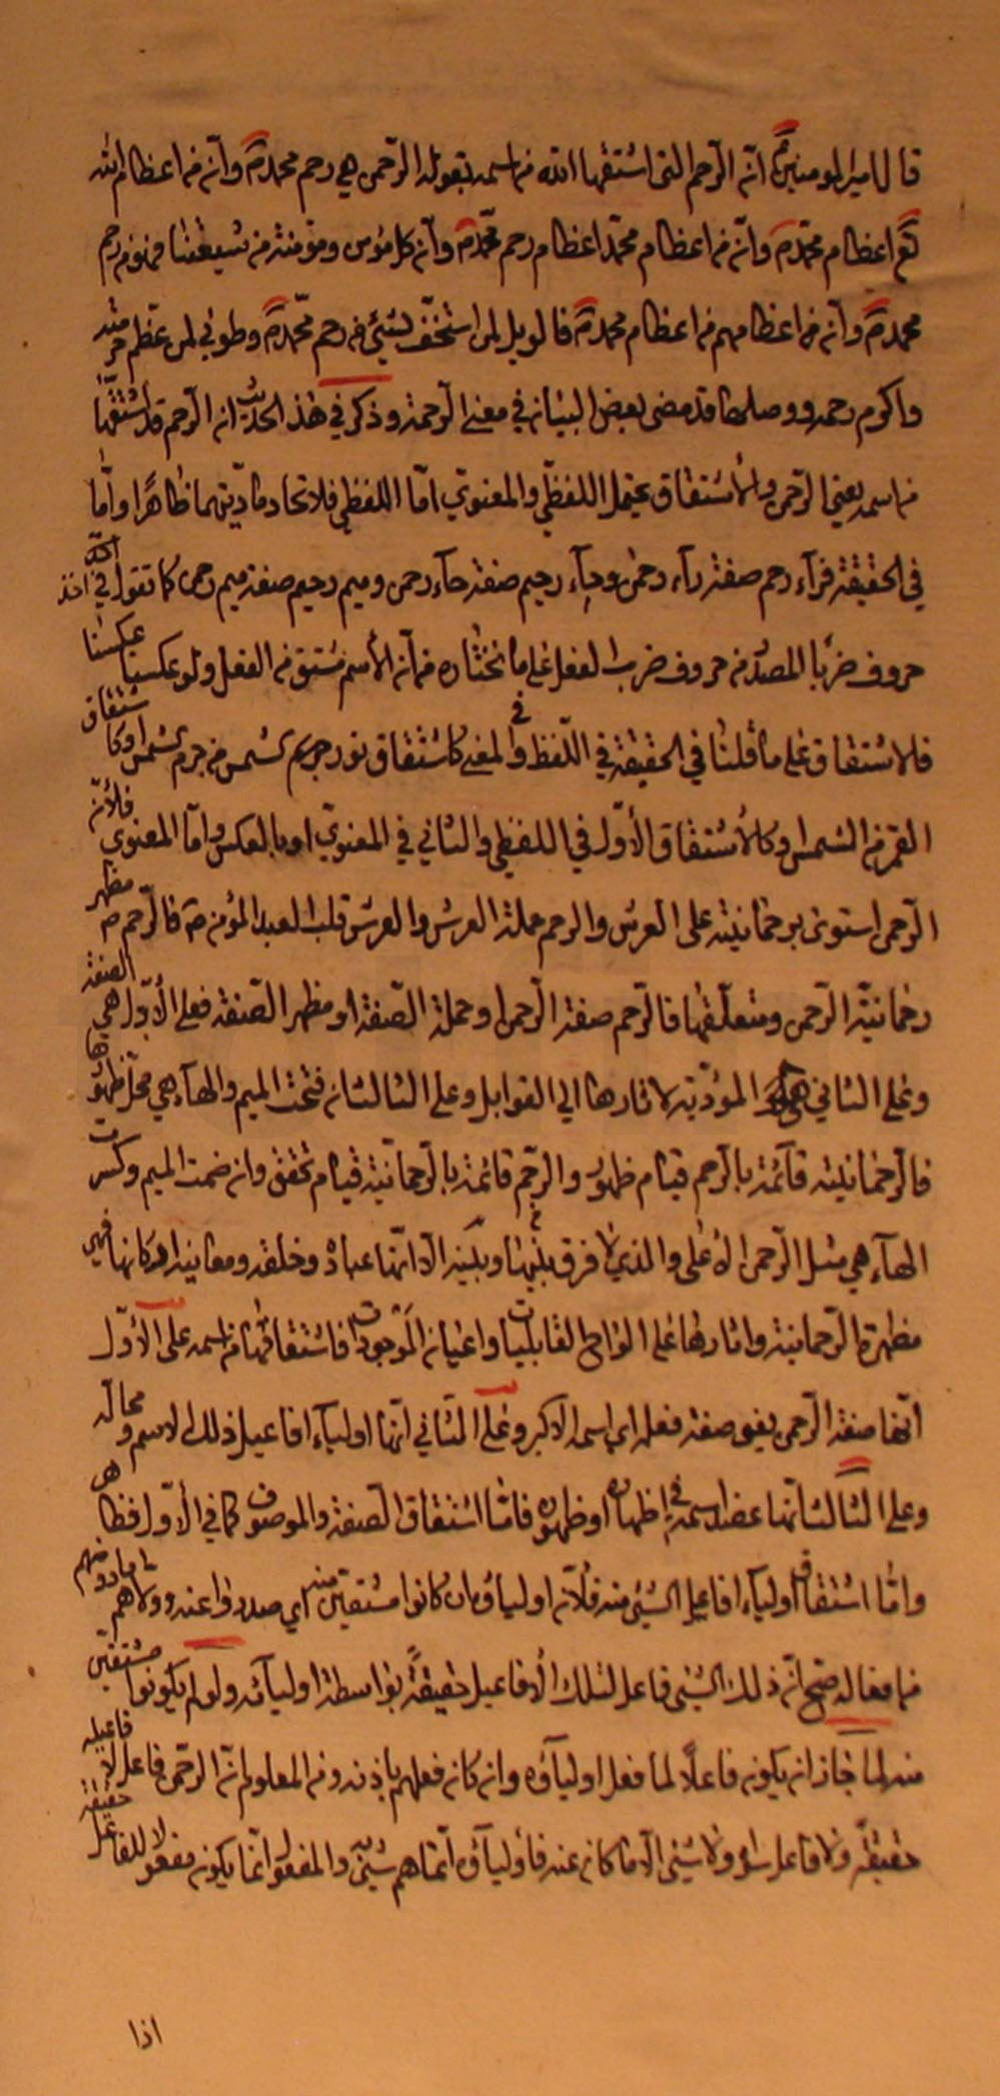 قال امير المومنين ع ان الرحم التي اشتقها الله من اسمه بقوله الرحمن هي رحم محمد ص وان من اعظام الله
تع اعظام محمد ص وان من اعظام محمد اعظام رحم محمد ص وان كل مؤمن ومؤمنة من شيعتنا فهو من رحم
محمد ص وان من اعظامهم من اعظام محمد ص فالويل لمن استخف بشيئ من رحم محمد ص وطوبى لمن عظم حرمته
واكرم رحمه ووصلها قد مضى بعض البيان في معنى الرحمة وذكر في هذا الحديث ان الرحم قد اشتقها
من اسمه يعني الرحمن والاشتقاق يحتمل اللفظي والمعنوي امّا اللفظي فلاتحاد مادتهما ظاهرًا وامّا
في الحقيقة فرآء رحم صفة رآء رحمن وحآء رحيم صفة حآء رحمن وميم رحيم صفة ميم رحمن كما تقول في اخذ
حروف ضربا المصدر من حروف ضرب الفعل على ما نختاره من ان الأسم مشتق من الفعل ولو عكسنا عكسنا
فالاشتقاق على ما قلنا في الحقيقة في اللفظ وفي المعنى كاشتقاق نور جرم الشمس من جرم الشمس او كاشتقاق
القمر من الشمس وكالاشتقاق الأوّل في اللفظي والثاني في المعنوي او بالعكس وامّا المعنوي فلأنّ
الرحمن استوى برحمانيته على العرش والرحم حملة العرش والعرش قلب العبد المؤمن فالرحم مظهر
رحمانية الرحمن ومتعلقها فالرحم صفة الرحمن او حملة الصفة او مظهر الصفة فعلى الأوّل هي الصفة
وعلى الثاني هي المؤدّية لاثارها الى القوابل وعلى الثالث ان فتحت الميم والهآء هي محل ظهورها
فالرحمانية قآئمة بالرحم قيام ظهور والرحم قائمة بالرحمانية قيام تحقق وان ضمت الميم وكسرت
الهآء هي مثل الرحمن الاعلى والذي لا فرق بينها وبينه الا انها عباده وخلقه ومعانيه اركانها فهي
مظهرة الرحمانية واثارها على الواح القابليات واعيان الموجودات فاشتقاقها من اسمه على الأوّل
انها صفة الرحمن يعني صفة فعله اي اسمه الاكبر وعلى الثاني انها اوليآء افاعيل ذلك الاسم ومحاله
وعلى الثالث انها عضد اسمه في اظهاره او ظهوره فامّا اشتقاق الصفة والموصوف كما في الأوّل فظاهر
وامّا اشتقاق اوليآء افاعيل الشيئ منه فلأن اولياؤه ان كانوا مشتقين منه اي صدروا عنه
من افعاله صح ان ذلك الشيئ فاعل لتلك الأفاعيل حقيقةً بواسطة اوليآئه ولو لم يكونوا مشتقين
منه لما جاز ان يكون فاعلًا لما فعل اوليآؤه وان كان فعلهم باذنه ومن المعلوم انّ الرحمن فاعل لافاعيله
حقيقة ولا فاعل سواه ولا شيئ الا ما كان عنه فأوليآؤه انما هم شيئ والمفعول انما يكون مفعولا للفاعل حقيقة
اذا